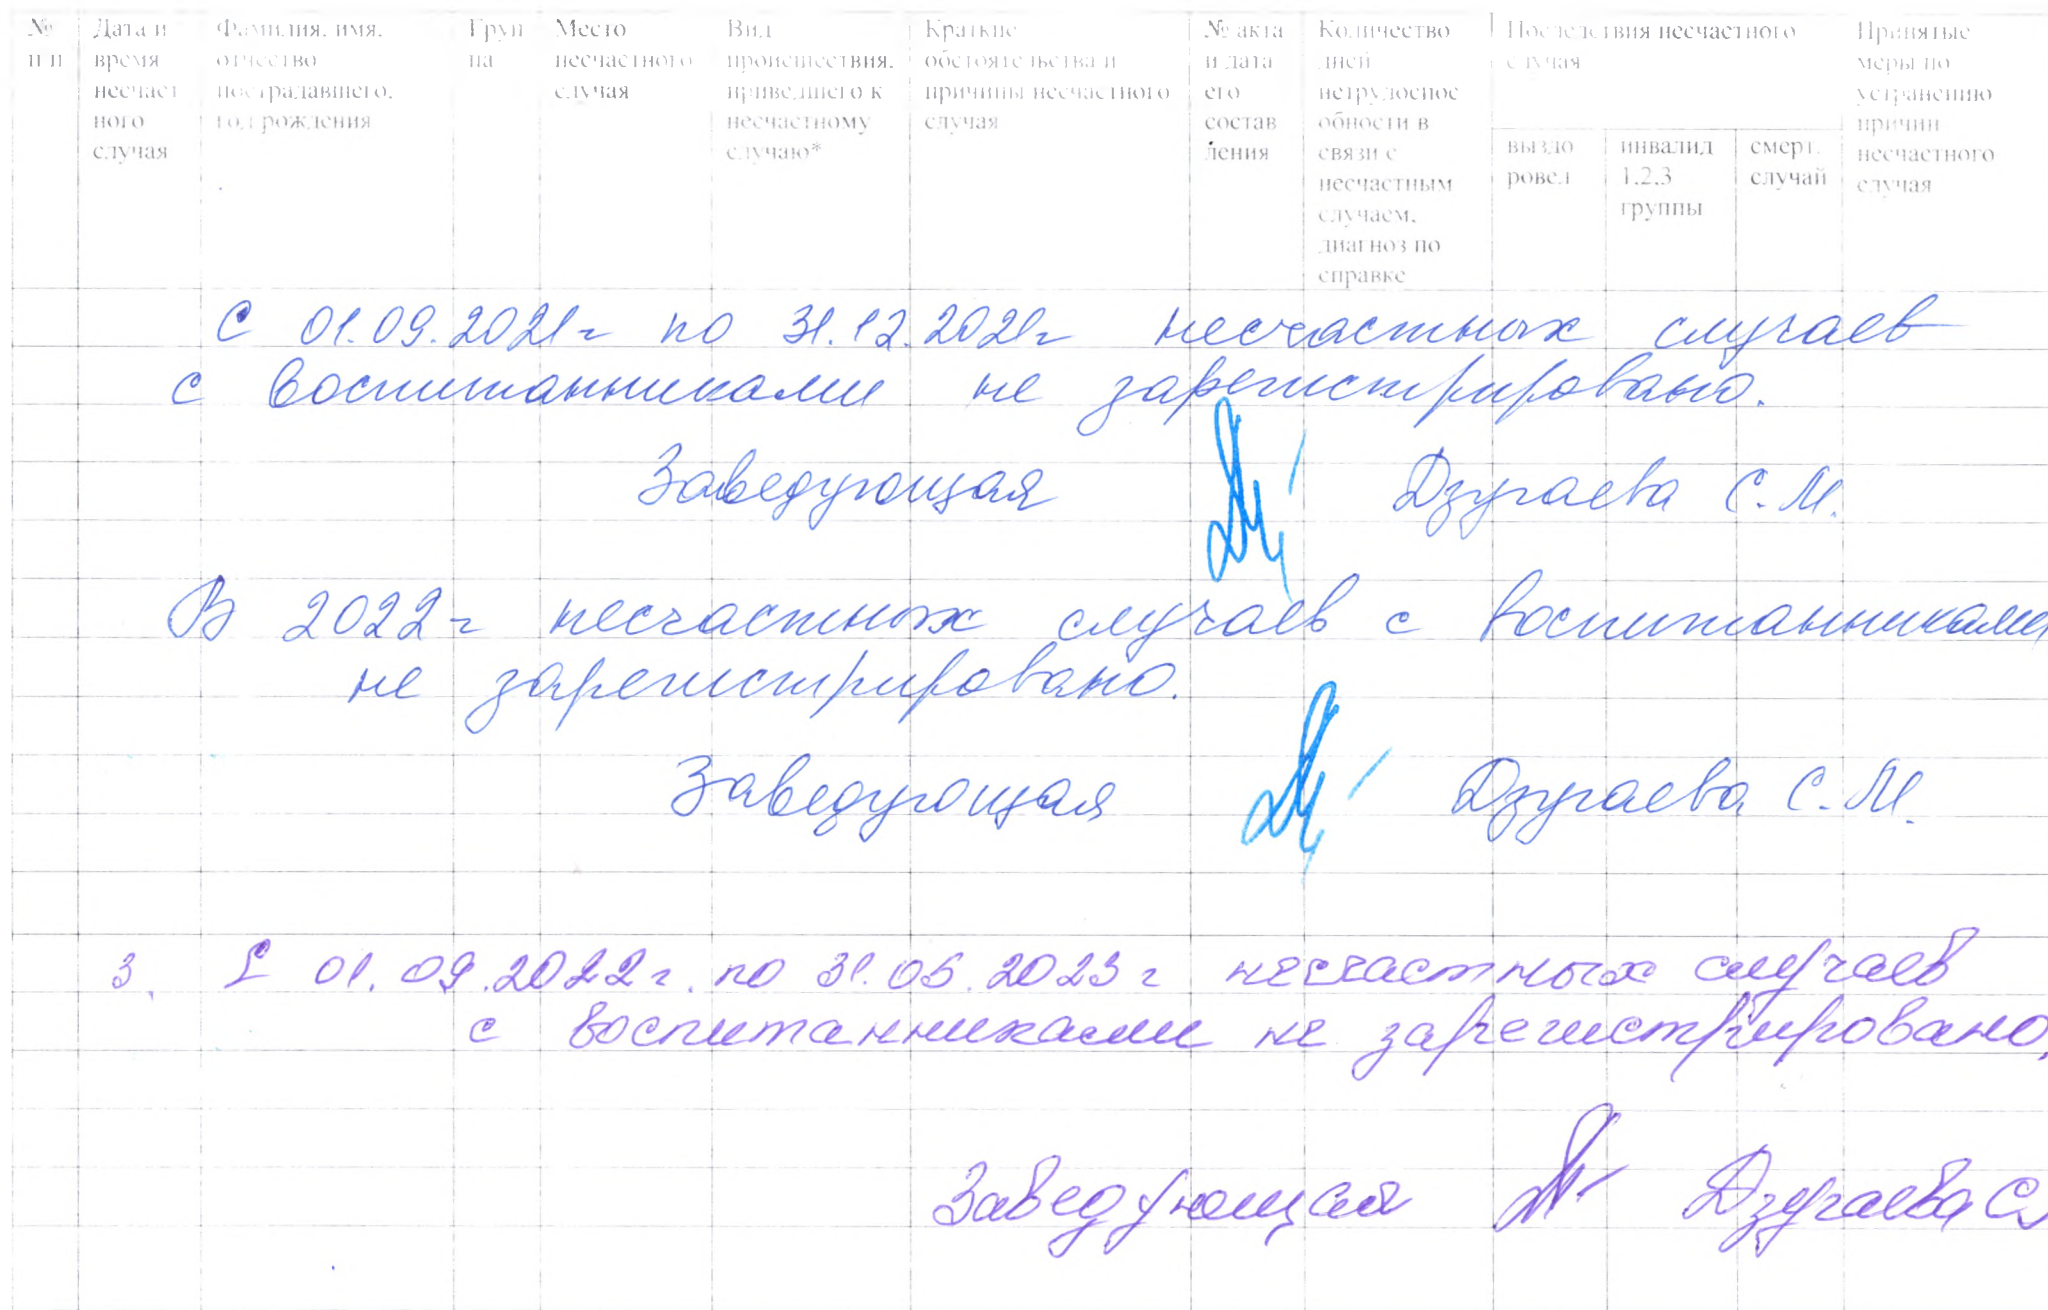 № п п
Дата и время несчаст ного случая
Фамилия, имя, отчество пострадавшего, год рождения
Груп па
Место несчастного случая
Вид происшествия, приведшего к несчастному случаю*
Краткие обстоятельства и причины несчастного случая
№ акта и дата его состав ления
Количество дней нетрудоспос обности в связи с несчастным случаем, диагноз по справке
Последствия несчастного случая
выздо ровел
инвалид 1,2,3 группы
смерт. случай
Принятые меры по устранению причин несчастного случая
С 01.09.2021г по 31.12.2021г несчастных случаев
с воспитанниками не зарегистрировано.
Заведующая Дзугаева С.М.
В 2022г несчастных случаев с воспитанниками
не зарегистрировано.
Заведующая Дзугаева С.М.
3. С 01.09.2022г. по 31.05.2023г несчастных случаев
с воспитанниками не зарегистрировано.
Заведующая Дзугаева С